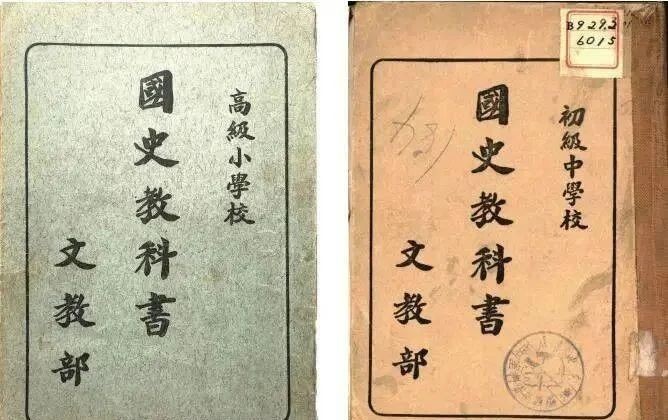 高級小學校
國史教科書
文教部
B929.2
6015
初級中學校
國史教科書
文教部